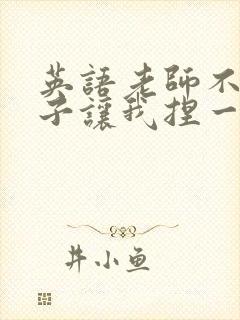 英語老師不
子讓我捏一
井小鱼